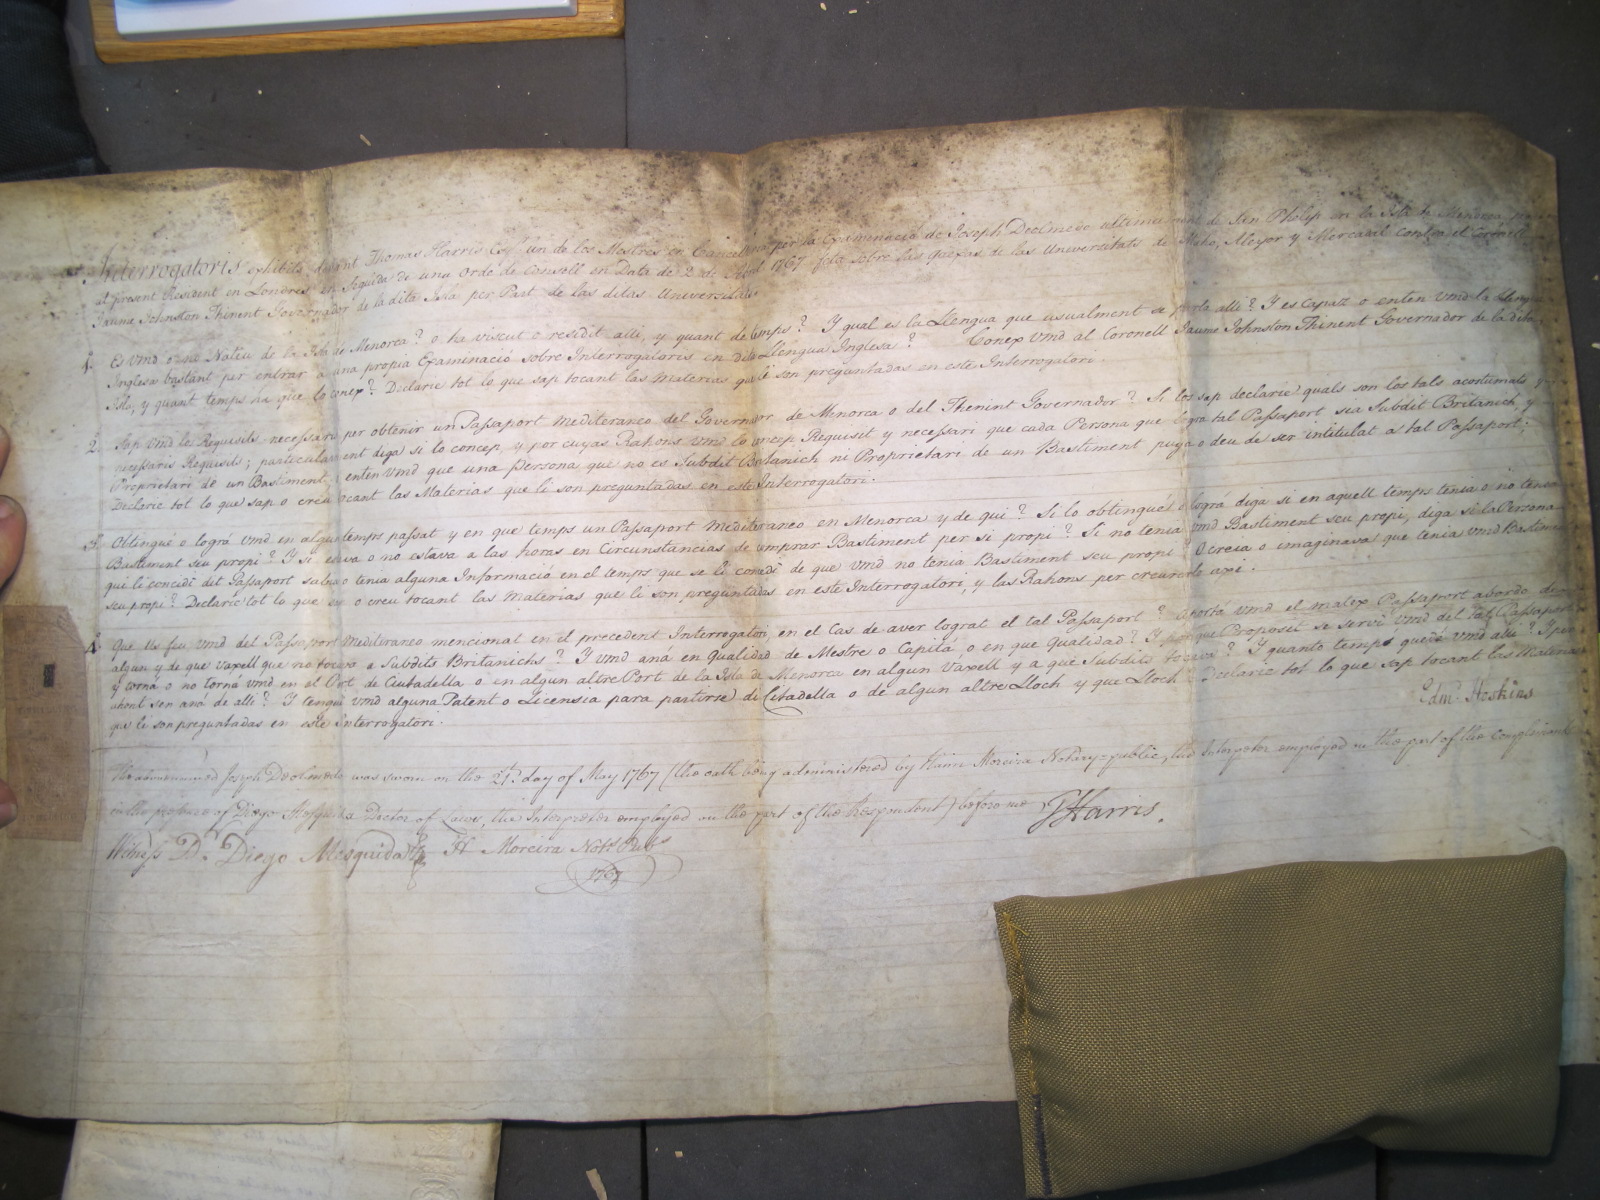 Interrogatoris exhibits devant Thomas Harris Esqr. un de los Mestres en Cancelleria per la Examinació de Joseph Deolmedo ultimament de Sen Phelip en la Isla de Menorca
al present Resident en Londres en seguida de una Orde de Consell en Data de 2 de Abril 1767 feta sobre las Quexas de las Universitats de Maho, Aleyor y Mercadal contra el Coronell
Jaume Johnston Thinent Governador de la dita Isla per Part de las ditas Universitats
1. Es Vmd o no Nativ de la Isla de Menorca? o ha viscut o residit alli, y quant de temps? Y qual es la Llengua que usualment se parla alli? Y es Capaz o enten Vmd la Llengua
Inglesa bastant per entrar a una propia Examinació sobre Interrogatoris en dita Llengua Inglesa? Conex Vmd al Coronell Jaume Johnston Thinent Governador de la dita
Isla, y quant temps ha que lo conex? Declarie tot lo que sap tocant las Materias que li son preguntadas en este Interrogatori.
2. Sap Vmd los Requisits necessaris per obtenir un Passaport Mediteraneo del Governador de Menorca o del Thenint Governador? Si los sap declarie quals son los tals acostumats y
necessaris Requisits; particularment diga si lo concep, y por cuyas Rahons Vmd lo concep Requisit y necessari que cada Persona que logra tal Passaport sia Subdit Britanich y
Proprietari de un Bastiment, enten Vmd que una Persona que no es Subdit Britanich ni Proprietari de un Bastiment puga o deu de ser intitulat a tal Passaport;
Declarie tot lo que sap o creu tocant las Materias que li son preguntadas en este Interrogatori.
3. Obtingué o logrà Vmd en algun temps passat y en que temps un Passaport Mediteraneo en Menorca y de qui? Si lo obtingué o logrà diga si en aquell temps tenia o no tenia
Bastiment seu propi? Y si estava o no estava a las horas en Circunstancias de comprar Bastiment per si propi? Si no tenia Vmd Bastiment seu propi, diga si la Persona
qui li concedi dit Passaport sabia o tenia alguna Informació en el temps que se li concedi de que Vmd no tenia Bastiment seu propi? O creia o imaginava que tenia Vmd Bastiment
seu propi? Declarie tot lo que sap o creu tocant las Materias que li son preguntadas en este Interrogatori, y las Rahons per creurerlo axi.
4. Que us feu Vmd del Passaport Mediteraneo mencionat en el precedent Interrogatori, en el Cas de aver lograt el tal Passaport? O portá Vmd el matex Passaport abordo de
algun y de que Vaxell que no tocava a Subdits Britanichs? Y Vmd aná en Qualidad de Mestre o Capitá, o en que Qualidad? Y per que Proposit se serví Vmd del tal Passaport
y torna o no torná Vmd en el Port de Ciutadella o en algun altre Port de la Isla de Menorca en algun Vaxell y a que Subdits tocava? Y quanto temps quedá Vmd alli?
ahont sen aná de alli? Y tengué Vmd alguna Patent o Licensia para partirse de Citadella o de algun altre Lloch y que Lloch Declarie tot lo que sap tocant las Materias
que li son preguntadas en este Interrogatori.
Edmd. Hoskins
The abovenamed Joseph Deolmedo was sworn on the 21st. day of May 1767 (the oath being administered by Haim Moreira Notary-public, the Interpreter employed on the part of the Complainants
in the presence of Diego Mesquida Doctor of Laws, the Interpreter employed on the part of the Respondent) before me
THarris.
Witness Dr. Diego Mesquida H. Moreira Noty. Pub.
1767